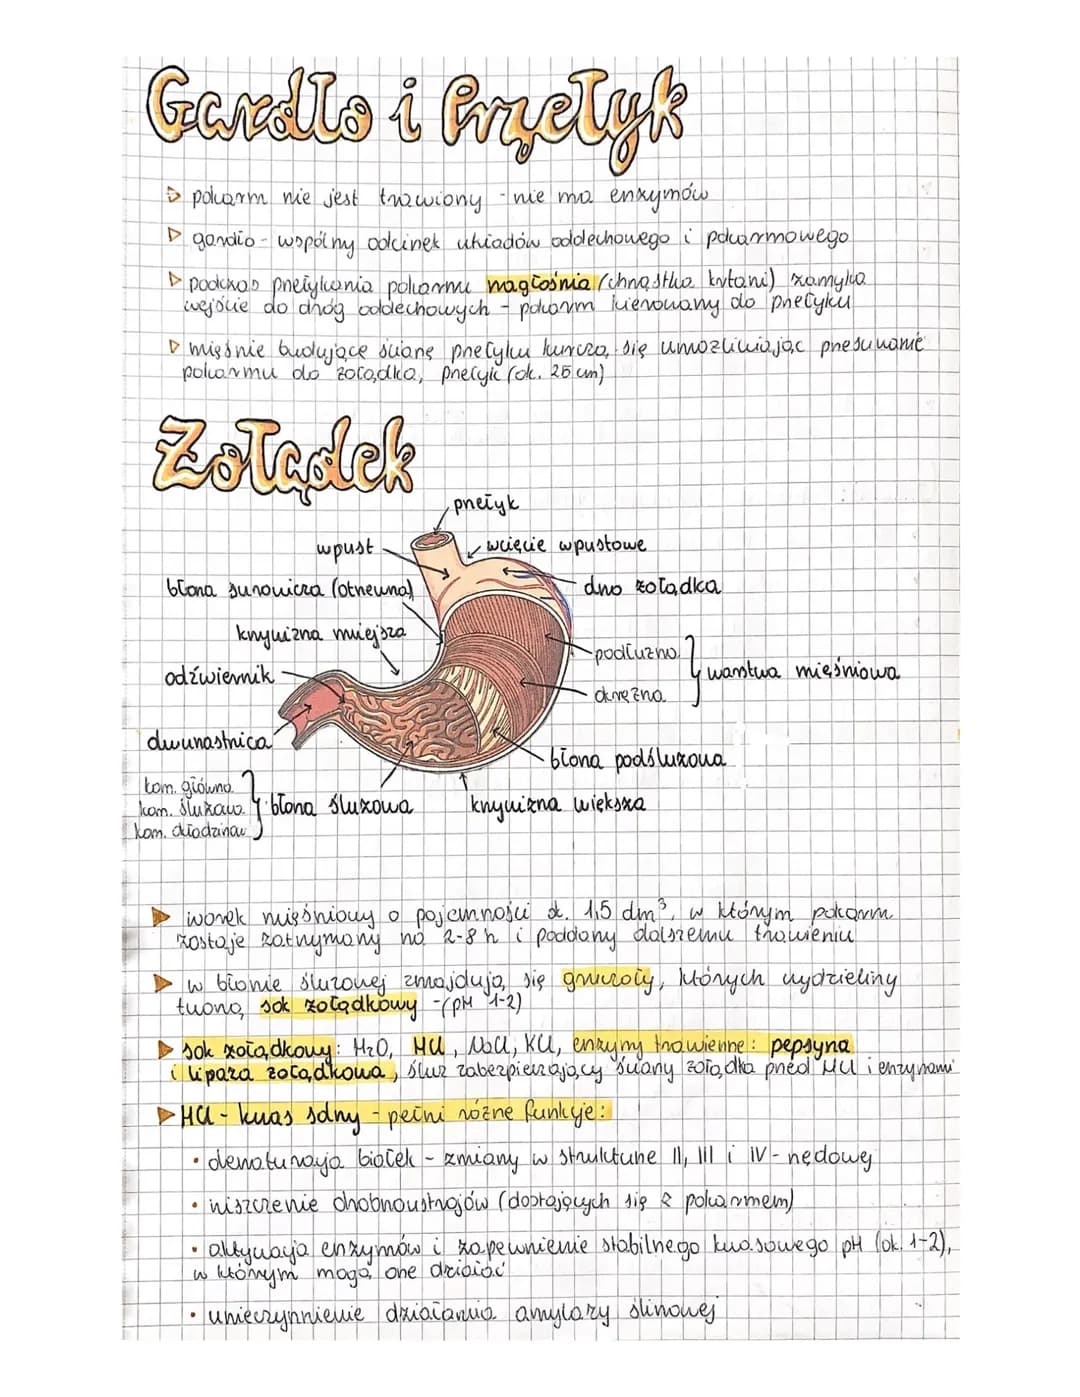 Gardło i Przełyk
pokarm nie jest trawiony - nie ma enzymów
gardło - wspólny odcinek układów oddechowego i pokarmowego
podczas przełykania pokarmu nagłośnia (chrząstka krtani) zamyka
wejście do dróg oddechowych - pokarm kierowany do przełyku
mięśnie budujące ścianę przełyku kurczą się umożliwiając przesuwanie
pokarmu do żołądka, przełyk (ok. 25 cm)
Żołądek
przełyk
wpust
wcięcie wpustowe
błona surowicza (otrzewna)
dno żołądka
krzywizna mniejsza
podłużna
okrężna
warstwa mięśniowa
odźwiernik
dwunastnica
błona podśluzowa
kom. główna
kom. śluzowa
kom. okładzinow
błona śluzowa
krzywizna większa
worek mięśniowy o pojemności ok. 1,5 dm³, w którym pokarm
zostaje zatrzymany na 2-8 h i poddany dalszemu trawieniu
w błonie śluzowej znajdują się gruczoły, których wydzieliny
tworzą sok żołądkowy - (pH 1-2)
sok żołądkowy: H2O, HCl, NaCl, KCl, enzymy trawienne: pepsyna
i lipaza żołądkowa, śluz zabezpieczający ściany żołądka przed HCl i enzymami
HCl - kwas solny - pełni różne funkcje:
• denaturacja białek - zmiany w strukturze II, III i IV - rzędowej
• niszczenie drobnoustrojów (dostających się z pokarmem)
• aktywacja enzymów i zapewnienie stabilnego kwasowego pH (ok. 1-2),
w którym mogą one działać
• unieczynnienie działania amylazy ślinowej